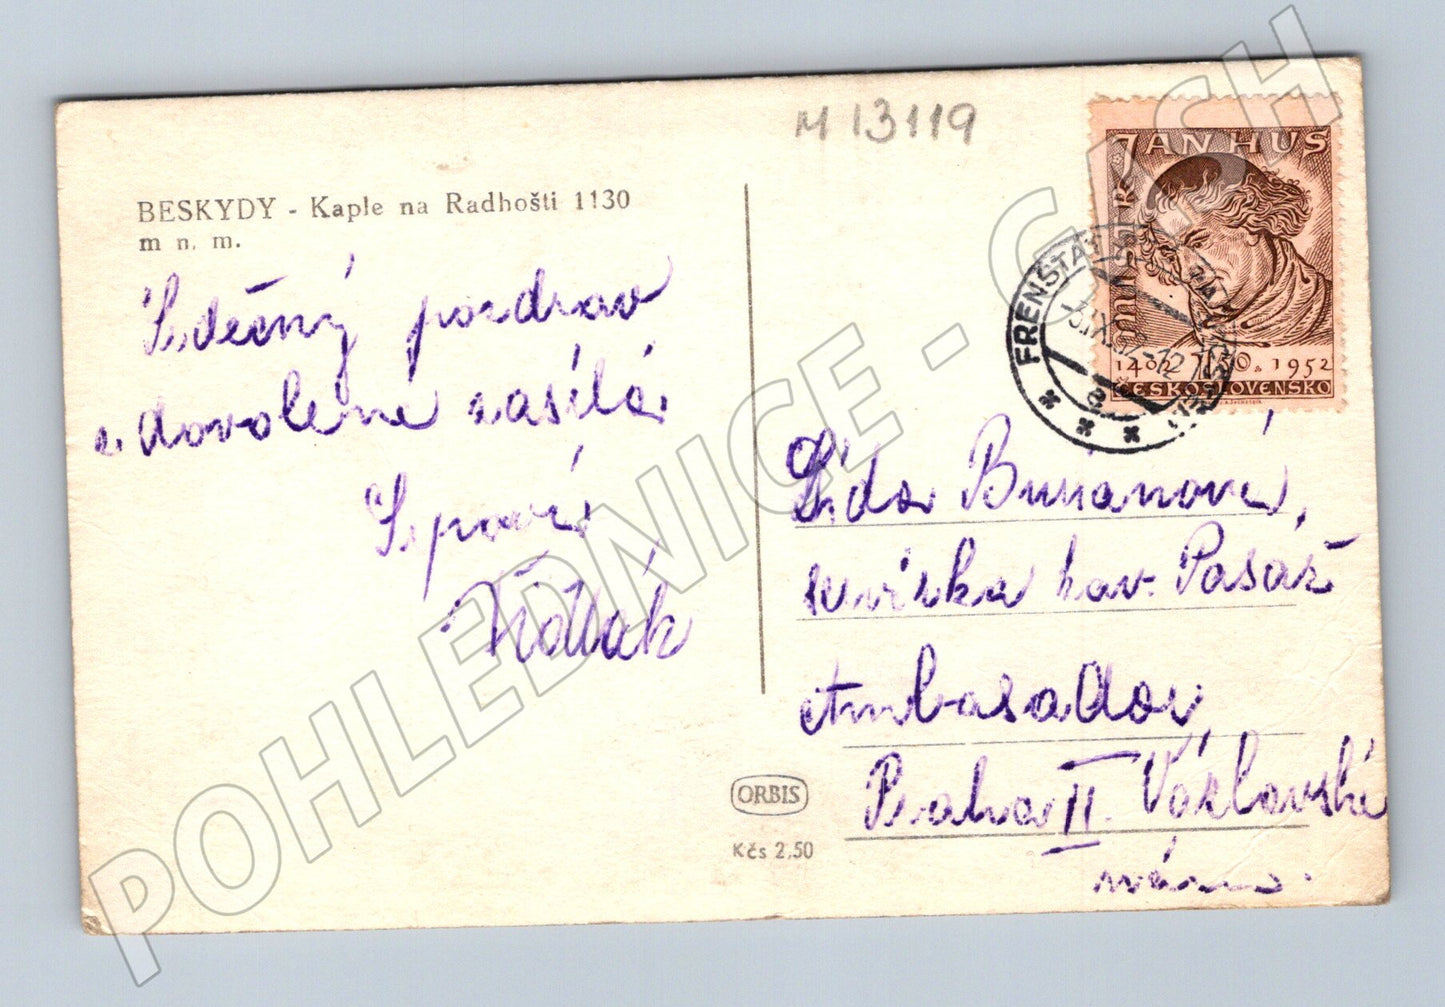 M 13119
BESKYDY - Kaple na Radhošti 1130
m n. m.
Srdečný pozdrav
z dovolené zasílá
Vidlák
JAN HUS
1402 1952
ČESKOSLOVENSKO
FRENŠTÁT
Lída Burianová,
servírka kav. Pasáž
Ambasador
Praha II. Václavské
nám.
ORBIS
Kčs 2,50
POHLEDNICE - CZECH